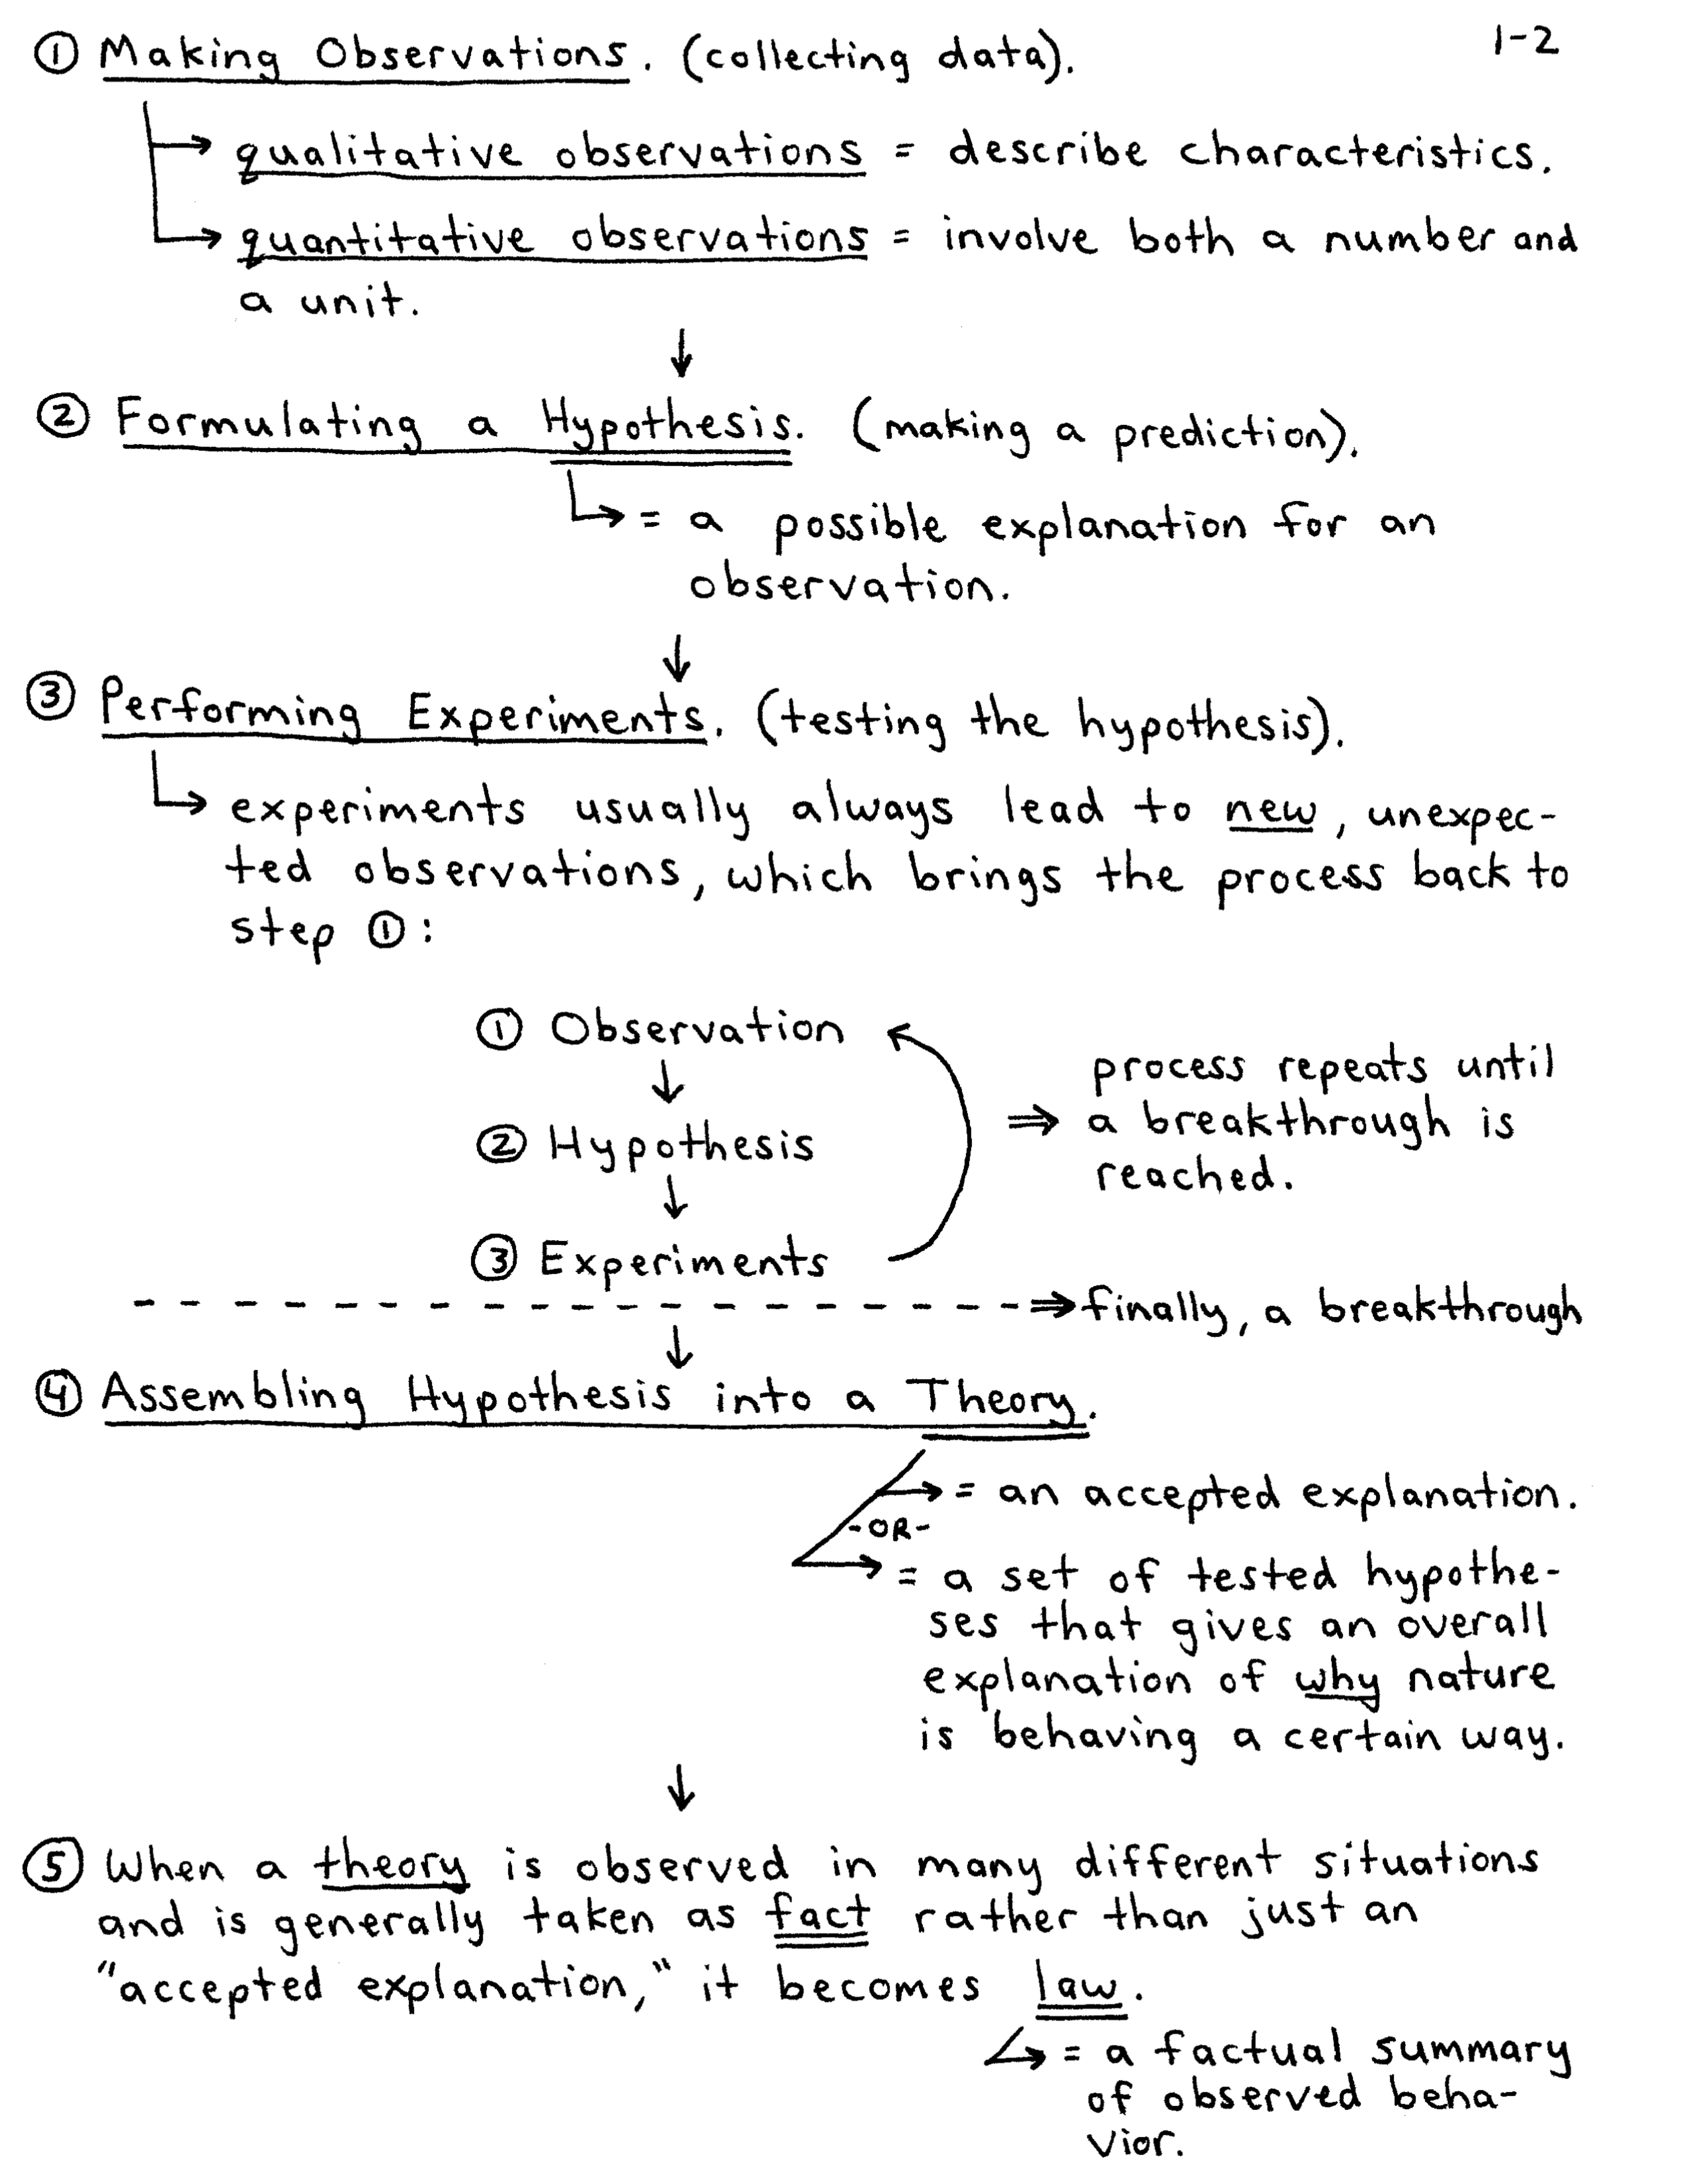 1-2
① Making Observations. (collecting data).
→ qualitative observations = describe characteristics.
→ quantitative observations = involve both a number and
a unit.
↓
② Formulating a Hypothesis. (making a prediction).
→ = a possible explanation for an
observation.
↓
③ Performing Experiments. (testing the hypothesis).
→ experiments usually always lead to new, unexpec-
ted observations, which brings the process back to
step ①:
① Observation
↓
② Hypothesis
↓
③ Experiments
process repeats until
⇒ a breakthrough is
reached.
⇒ finally, a breakthrough
↓
④ Assembling Hypothesis into a Theory.
→ = an accepted explanation.
-OR-
→ = a set of tested hypothe-
ses that gives an overall
explanation of why nature
is behaving a certain way.
↓
⑤ When a theory is observed in many different situations
and is generally taken as fact rather than just an
"accepted explanation," it becomes law.
→ = a factual summary
of observed beha-
vior.